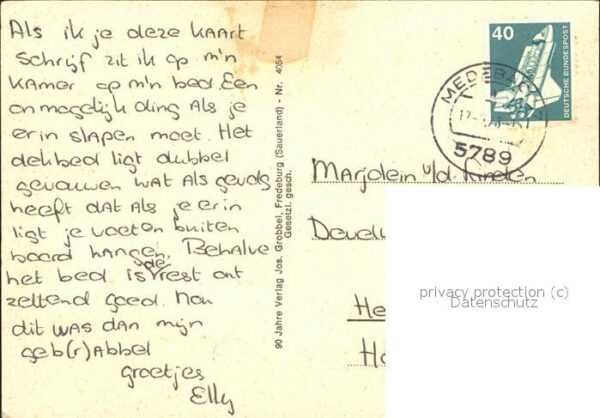 Als ik je deze kaart
schrijf zit ik op m'n
kamer op m'n bed. Een
onmogelijk ding als je
erin slapen moet. Het
dekbed ligt dubbel
gevouwen wat als gevolg
heeft dat als je erin
ligt je voeten buiten
boord hangen. Behalve
het bed is de rest ont
zettend goed. Nou
dit was dan mijn
geb(r)abbel
groetjes
Elly
90 Jahre Verlag Jos. Grobbel, Fredeburg (Sauerland) - Nr. 4054
Gesetzl. gesch.
40
DEUTSCHE BUNDESPOST
MEDEBACH
5789
Marjolein v/d
He
privacy protection (c)
Datenschutz